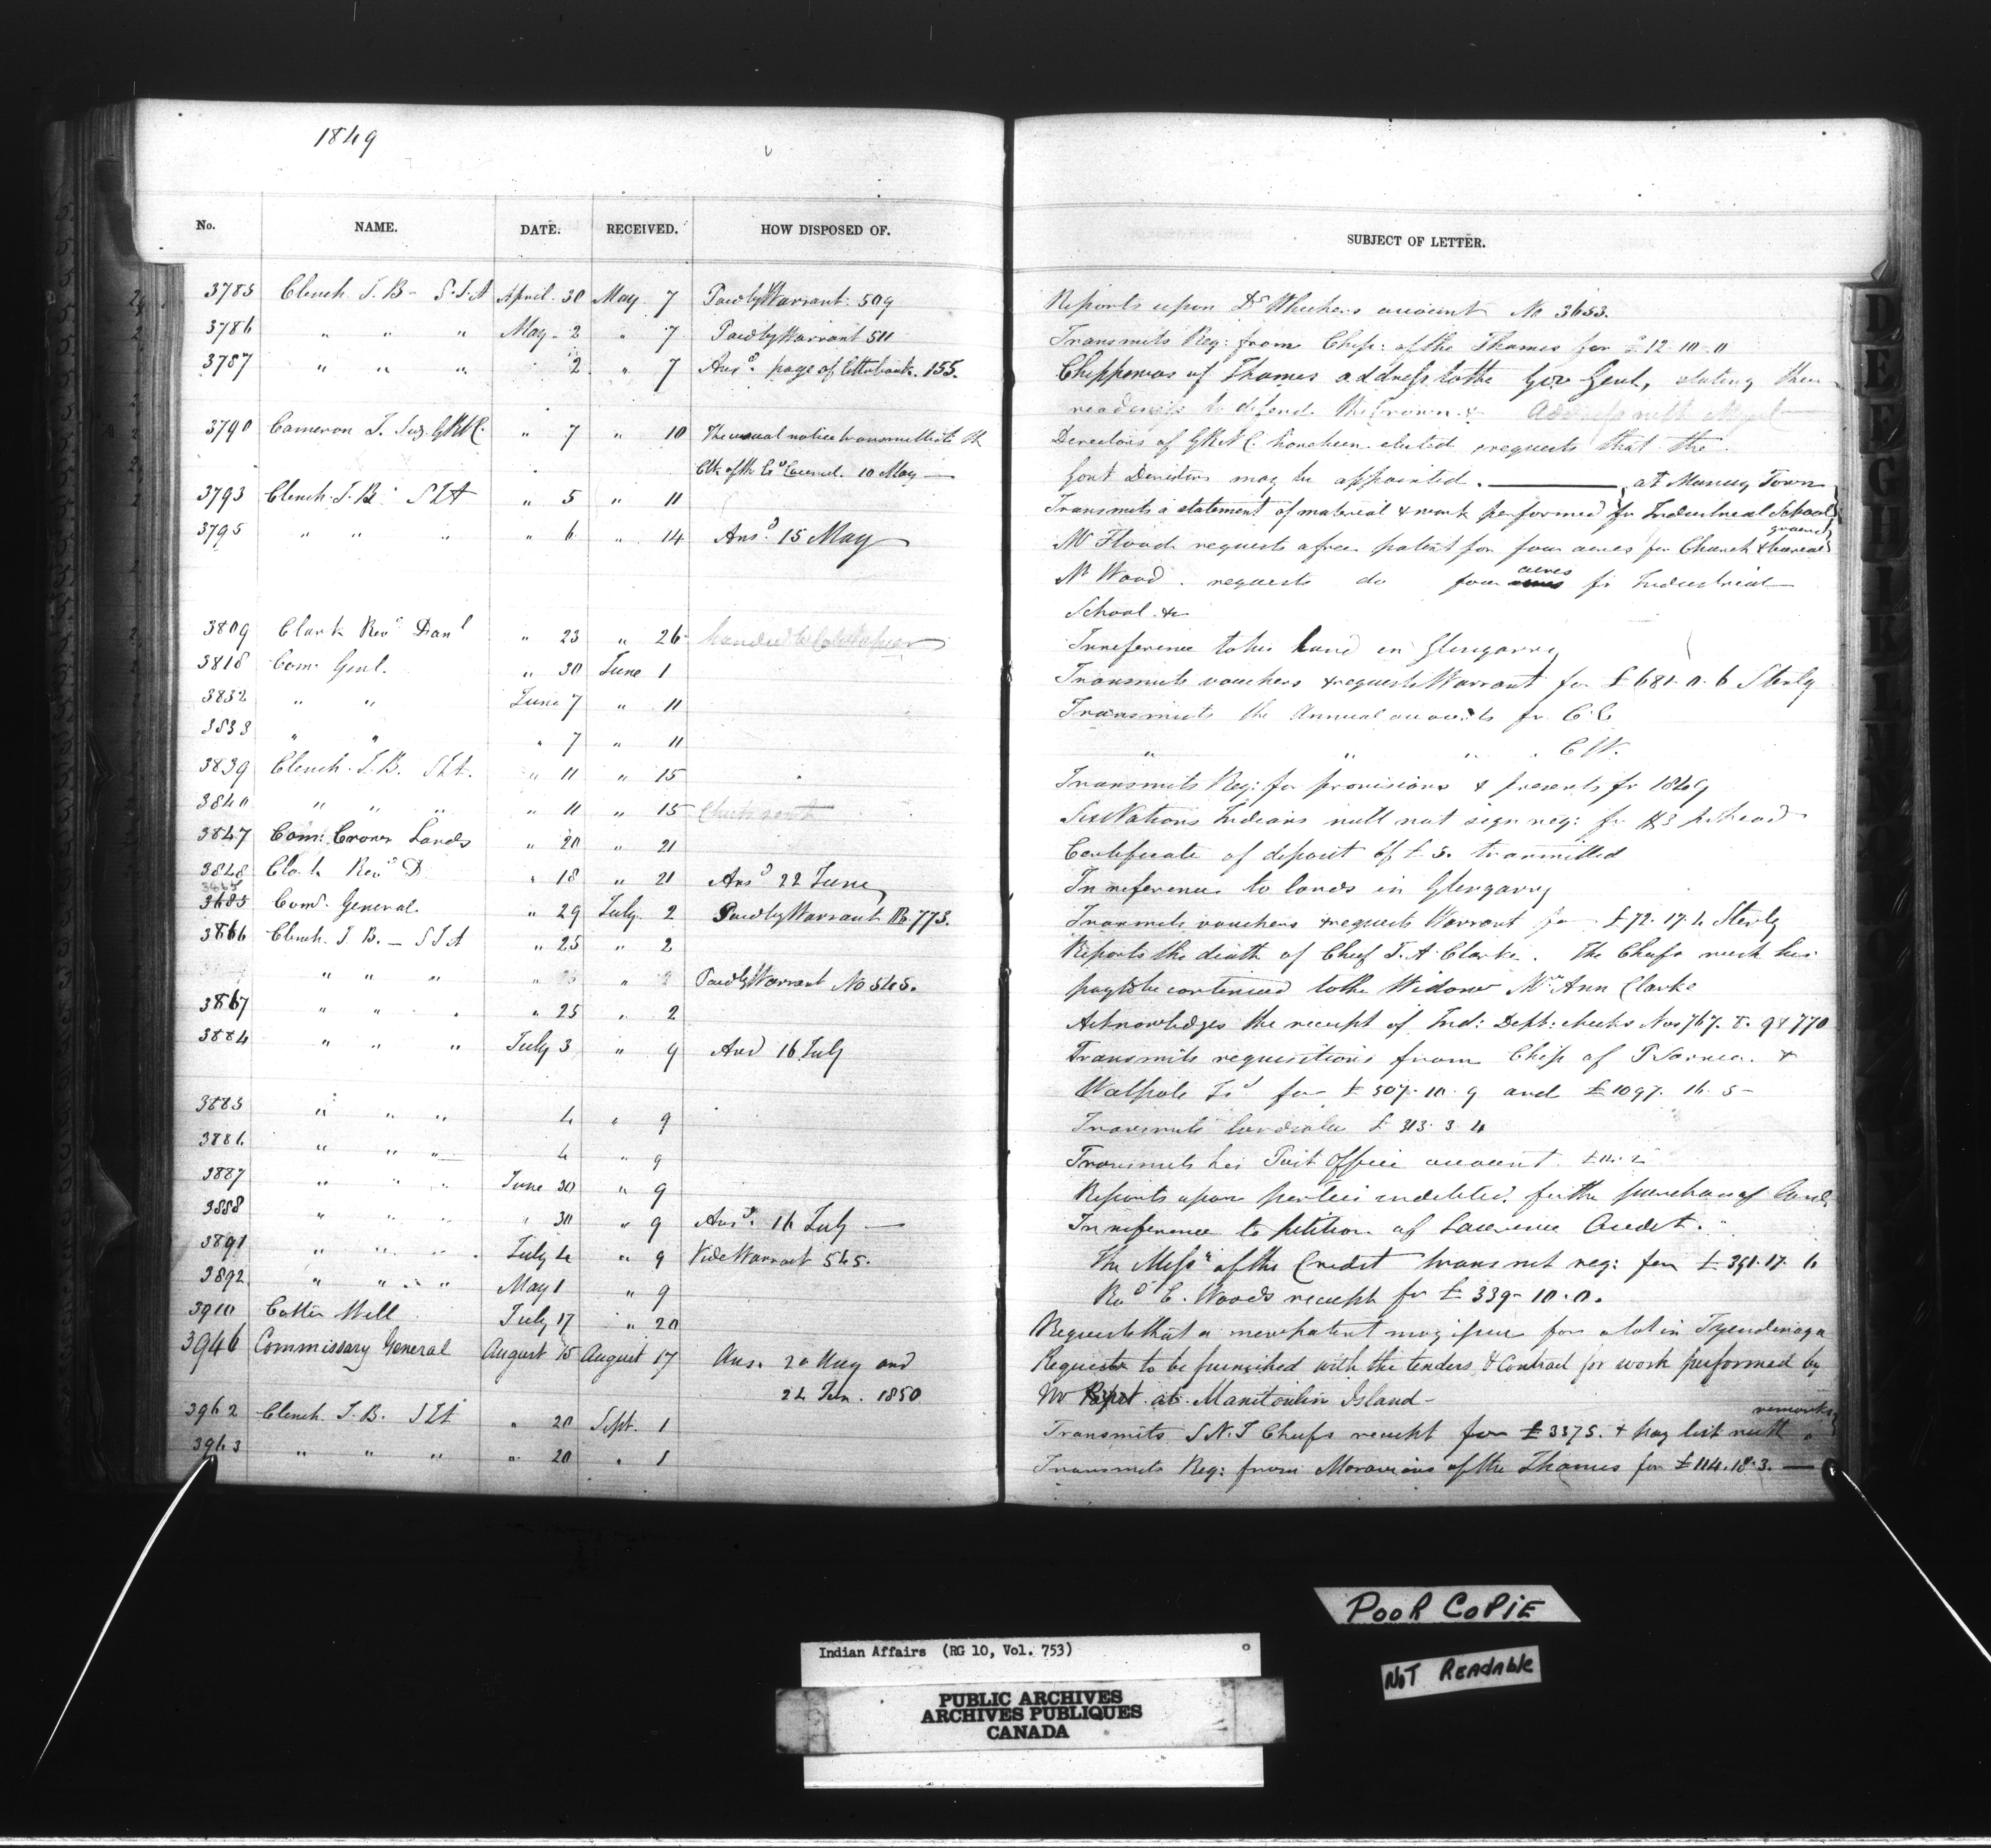 1849
No. NAME. DATE. RECEIVED. HOW DISPOSED OF. SUBJECT OF LETTER.
3785 Clench J. B - S.I.A April 30 May 7 Paid by Warrant 509 Reports upon Dr account No 3653.
3786 " " " May 2 " 7 Paid by Warrant 511 Transmits Req: from Chip: of the Thames for £12.10.0
3787 " " " 2 " 7 Ansd. page of letterbook. 155. Chippewas of Thames address to the Gov Genl, stating their
readiness to defend the Crown &
3790 Cameron J. GRNC. " 7 " 10 The usual notice transmitted to the Directors of GRNC elected requests that the
Clk of the Ex Council. 10 May — Govt Directors may be appointed. — at Muncey Town
3793 Clench J. B. SIA " 5 " 11 Transmits a statement of material & work performed for Industrial School
3795 " " " " 6 " 14 Ansd. 15 May Mr Flood requests a free patent for four acres for Church & burial ground
Mr Wood. requests do four acres for Industrial
School &c
3809 Clark Revd Danl " 23 " 26 In reference to his land in Glengarry
3818 Com. Genl. " 30 June 1 Transmits vouchers & requests Warrant for £681.0.6 Sterlg
3832 " " June 7 " 11 Transmits the Annual accounts for C.E
3833 " " " 7 " 11 " " " C W.
3839 Clench J. B. SIA. " 11 " 15 Transmits Req: for provisions & presents for 1849
3840 " " " " 11 " 15 Six Nations Indians will not sign req: for head
3847 Com: Crown Lands " 20 " 21 Certificate of deposit of £5. transmitted
3848 Clark Revd D " 18 " 21 Ansd 22 June In reference to lands in Glengarry
3865
3685 Comy. General. " 29 July 2 Paid by Warrant No. 773. Transmits vouchers & requests Warrant for £72.17.4 Sterlg
3866 Clench J. B. - SIA " 25 " 2 Reports the death of Chief J. A. Clarke. The Chiefs wish his
" " " " 25 " 2 Paid by Warrant No 545. pay to be continued to the Widow Mrs Ann Clarke
3867 " " " " 25 " 2 Acknowledges the receipt of Ind: Dept: checks Nos 767. 8. 9 & 770
3884 " " " July 3 " 9 Ansd 16 July Transmits requisitions from Chip of P Sarnia &
Walpole Isd for £507.10.9 and £1097.16.5 -
3885 " " " 4 " 9 Transmits £313.3.4
3886 " " " 4 " 9 Transmits his Post Office account
3887 " " " June 30 " 9 Reports upon parties indebted for the purchase of land.
3888 " " " " 30 " 9 Ansd. 16 July — In reference to petition of Lawrence
3891 " " " July 4 " 9 Vide Warrant 545. The Missrs of the Credit transmit req: for £391.17.6
3892 " " " May 1 " 9 Revd C. Woods receipt for £339.10.0.
3910 Cotter Will July 17 " 20 Requests that a new patent may issue for a lot in Tyendinaga
3946 Commissary General August 15 August 17 Ans. 20 Aug and Requests to be furnished with the tenders & Contract for work performed by
24 Jan. 1850 Mr at Manitoulin Island -
3962 Clench J. B. SIA " 20 Sept. 1 Transmits S.N.I Chiefs receipt for £3375. & pay list with remarks
3963 " " " " 20 " 1 Transmits Req: from Moravians of the Thames for £114.18.3. —
D
E
F
G
H
I
K
L
POOR COPIE
NOT READABLE
Indian Affairs (RG 10, Vol. 753)
PUBLIC ARCHIVES
ARCHIVES PUBLIQUES
CANADA